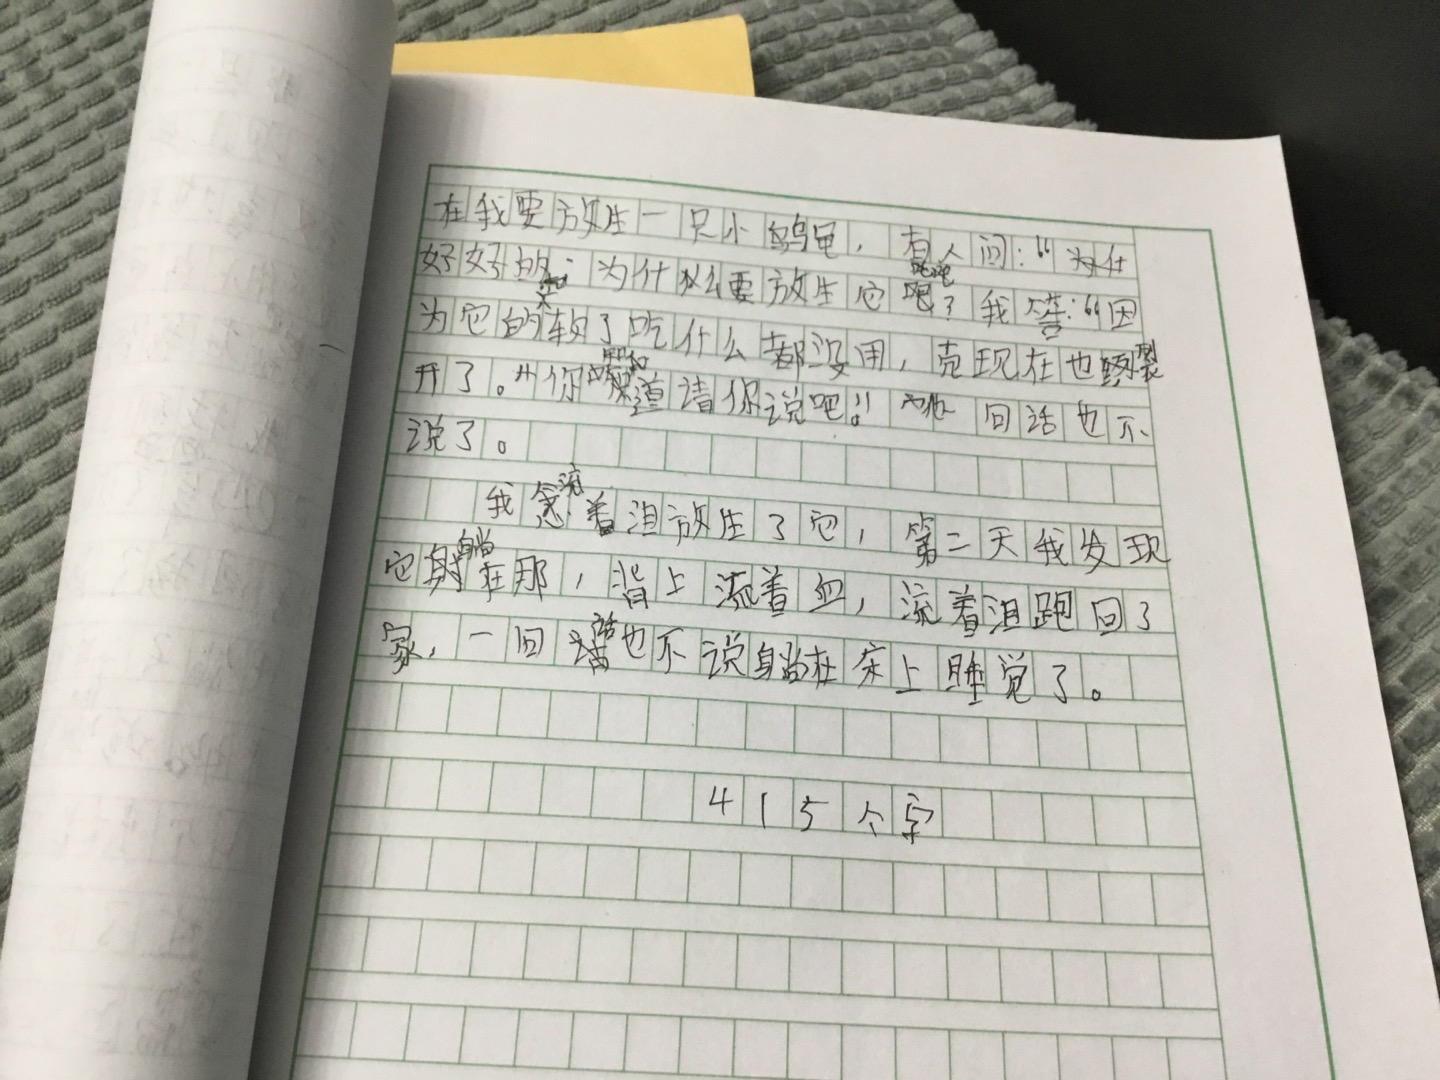 在我要放生一只小鹉龟，有人问：“为什
好好的：为什么要放生它呢？我答：“因
为它的软了吃什么都没用，壳现在也裂
开了。”你知道请你说吧!! 他 回话也不
说了。
我流着泪放生了它，第二天我发现
它躺在那，背上流着血，流着泪跑回了
家，一回话也不说躺在床上睡觉了。
415个字